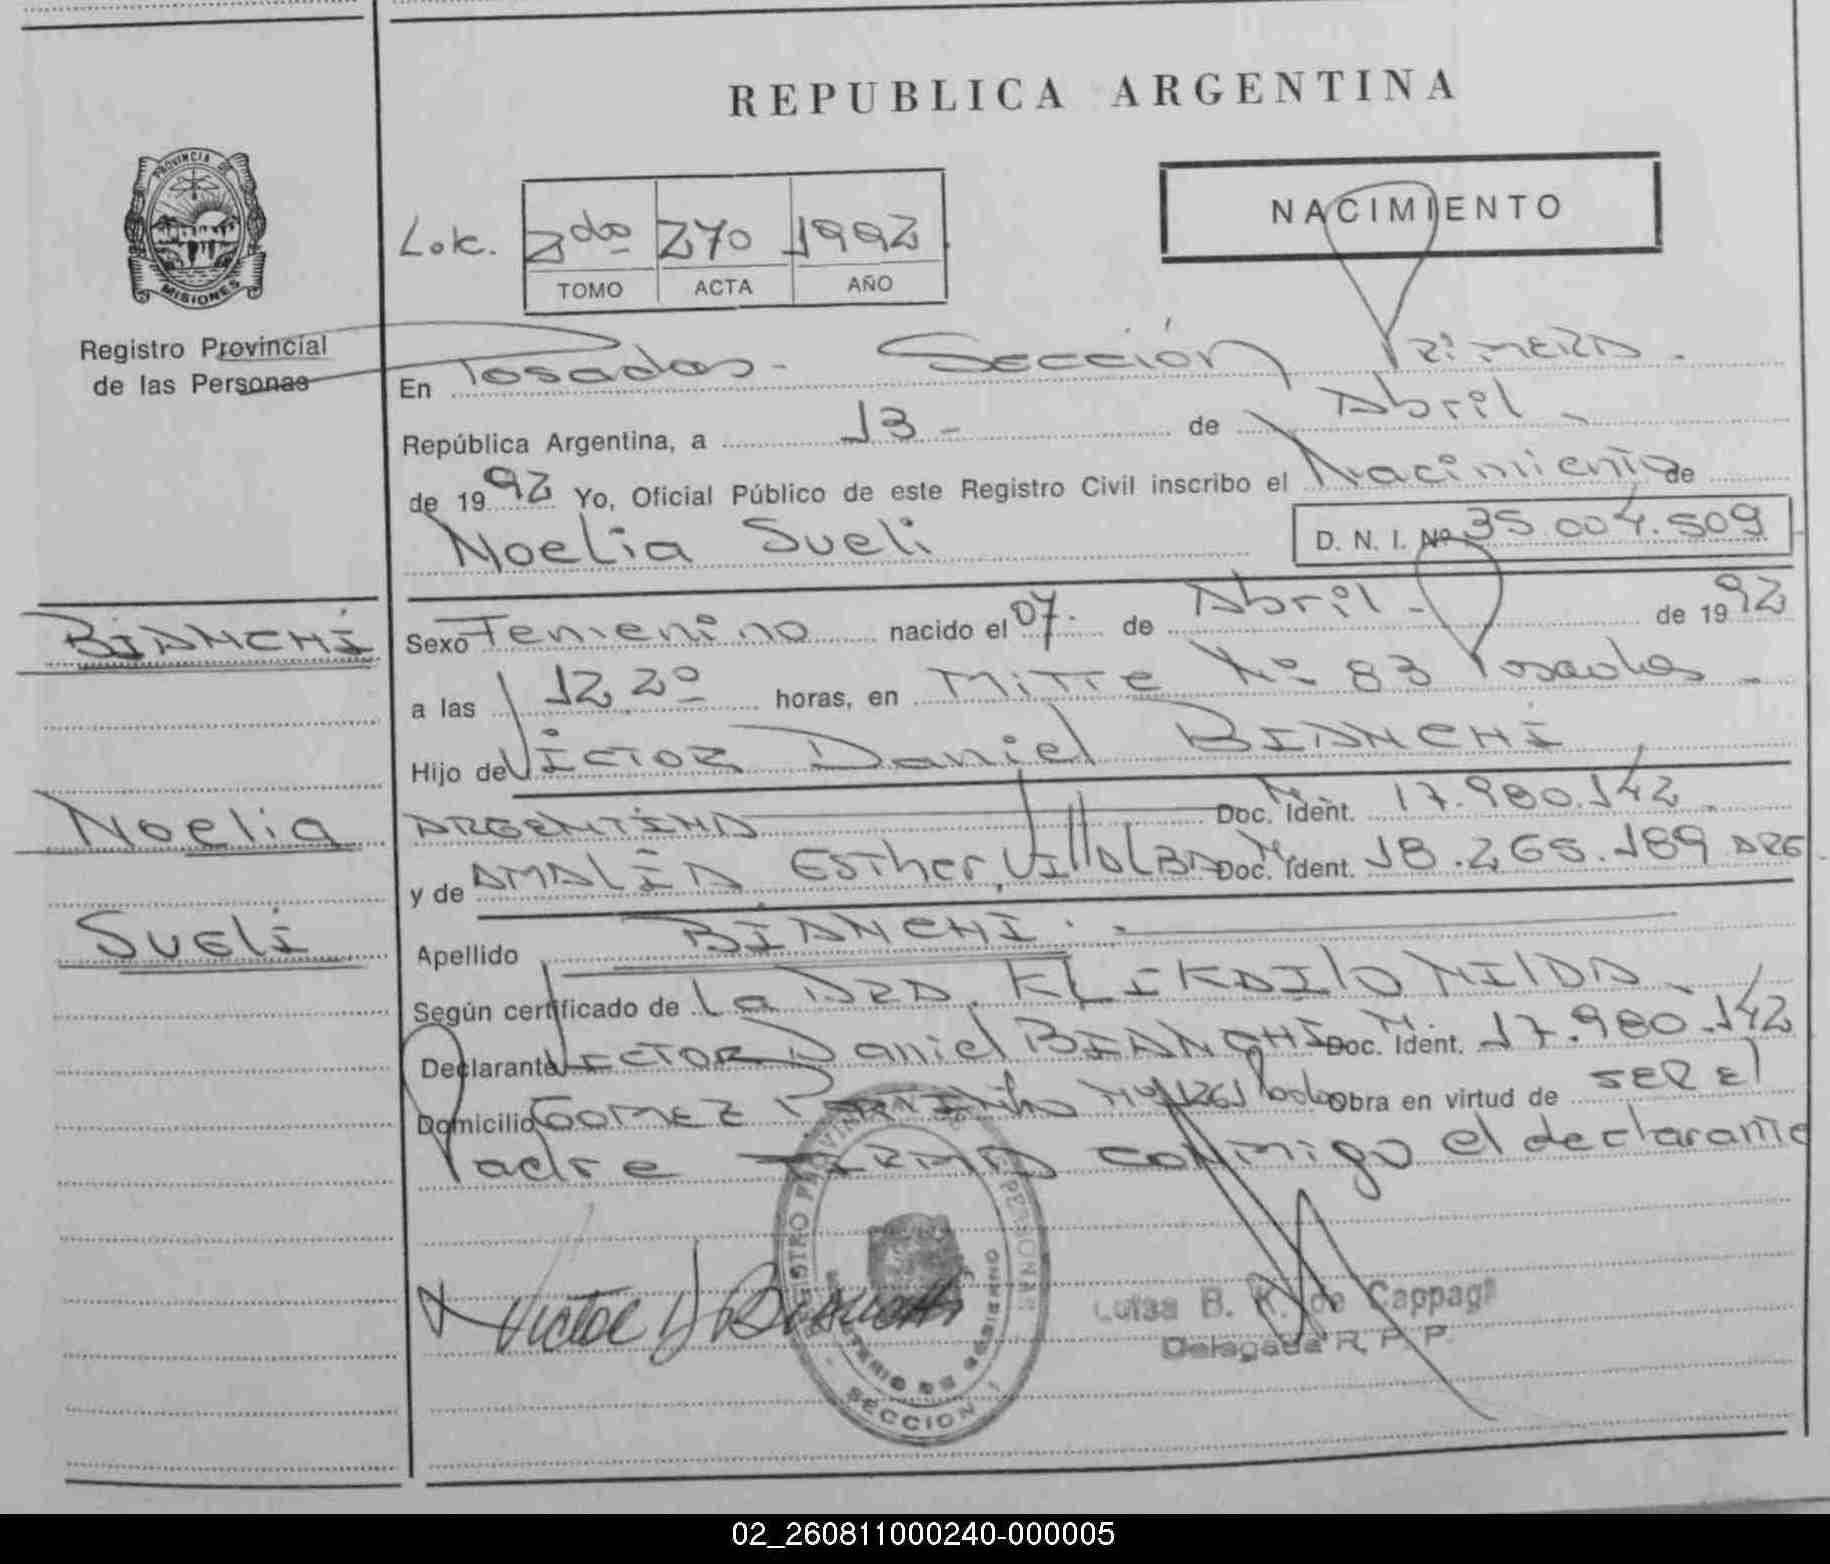 REPUBLICA ARGENTINA
PROVINCIA DE MISIONES
NACIMIENTO
2do 270 1992
TOMO ACTA AÑO
Registro Provincial
de las Personas
En Posadas - Sección Primera.
República Argentina, a 13 - de Abril
de 1992 Yo, Oficial Público de este Registro Civil inscribo el Nacimiento de
Noelia Sueli D. N. I. Nº 35.004.509
BIANCHI
Noelia
Sueli
Sexo Femenino nacido el 07 de Abril - de 1992
a las 12,20 horas, en Mitre Nº 83 Posadas -
Hijo de Victor Daniel BIANCHI
ARGENTINA Doc. Ident. 17.980.142
y de AMALIA Esther, VillALBA Doc. Ident. 18.265.189 ARG
Apellido BIANCHI
Según certificado de La DRA.
Declarante Victor Daniel BIANCHI Doc. Ident. 17.980.142
Domicilio GOMEZ Obra en virtud de SER El
Padre FIRMA conmigo el declarante
REGISTRO PROVINCIAL PERSONAS
MINISTERIO DE GOBIERNO
SECCION 1
Victor D. Bianchi
Luisa B. K. de Cappagli
Delegada R. P. P.
02_260811000240-000005